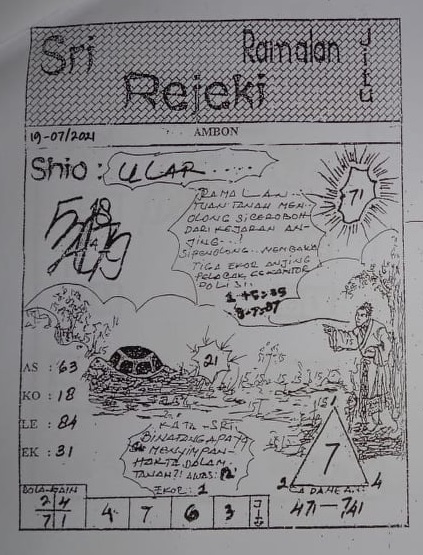 Sri
Ramalan
JITU
Rejeki
19-07/2021
AMBON
Shio : ULAR
71
RAMALAN
TUAN TANAH MEN-
OLONG SICEROBOH
DARI KEJARAN AN-
JING...!
SIPENOLONG.. MEMBAWA
TIGA EKOR ANJING
PELACAK KEKANTOR
POLISI.
21
AS : 63
KO : 18
LE : 84
EK : 31
KATA - SRI
BINATANG APA YA
MENYIMPAN
HARTA DALAM
TANAH?! AWAS: 12
EKOR: 1
7
2
4
471-741
BOLA-KAIN
2 4
7 1
4 7 6 3